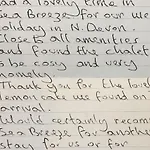 had a lovely time in
Sea Breeze for our we
holiday in N. Devon.
Close to all amenities
and found the chalet
to be cosy and very
homely
Thank you for the lovel
lemon cake we found on
arrival.
Would certainly recomm
Sea Breeze for another
stay for us or for